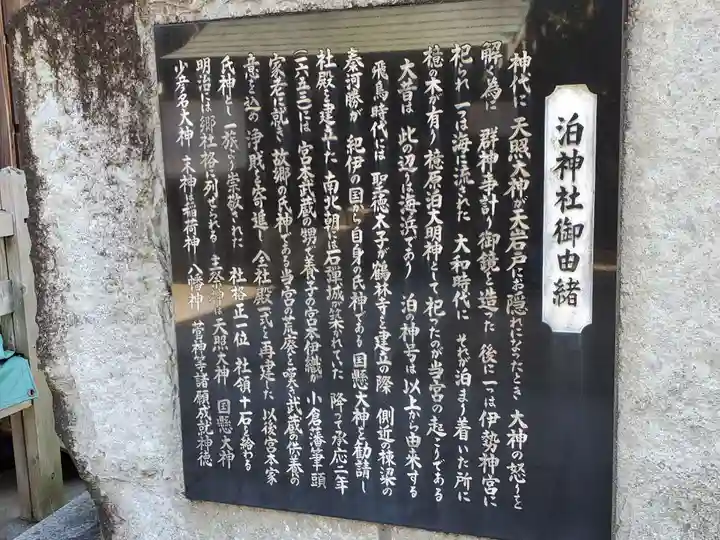 泊神社御由緒
神代に 天照大神が天岩戸にお隠れになったとき 大神の怒りを
解く為に 群神争計り御鏡を造った 後に一つは伊勢神宮に
祀られ 一つは海に流された 大和時代に それが泊まり着いた所に
檍の木が有り 檍原泊大明神として祀ったのが当宮の起こりである
大昔は 此の辺りは海浜であり 泊の神号は以上から由来する
飛鳥時代には 聖徳太子が鶴林寺を建立の際 側近の棟梁の
秦河勝が 紀伊の国から自身の氏神である 国懸大神を勧請し
社殿を建立した 南北朝には石弾城が築れていた 降って承応二年
(一六五三)には 宮本武蔵の甥で養子の宮本伊織が 小倉藩筆頭
家老に就き 故郷の氏神である当宮の荒廃を嘆き武蔵の供養の
意を込め 浄財を寄進し 全社殿一式を再建した 以後宮本家
氏神として一族より崇敬された 社格正一位 社領十石を給わる
明治には郷社格に列せられる 主祭神は天照大神 国懸大神
少彦名大神 末神は稲荷神 八幡神 菅神等諸願成就神徳